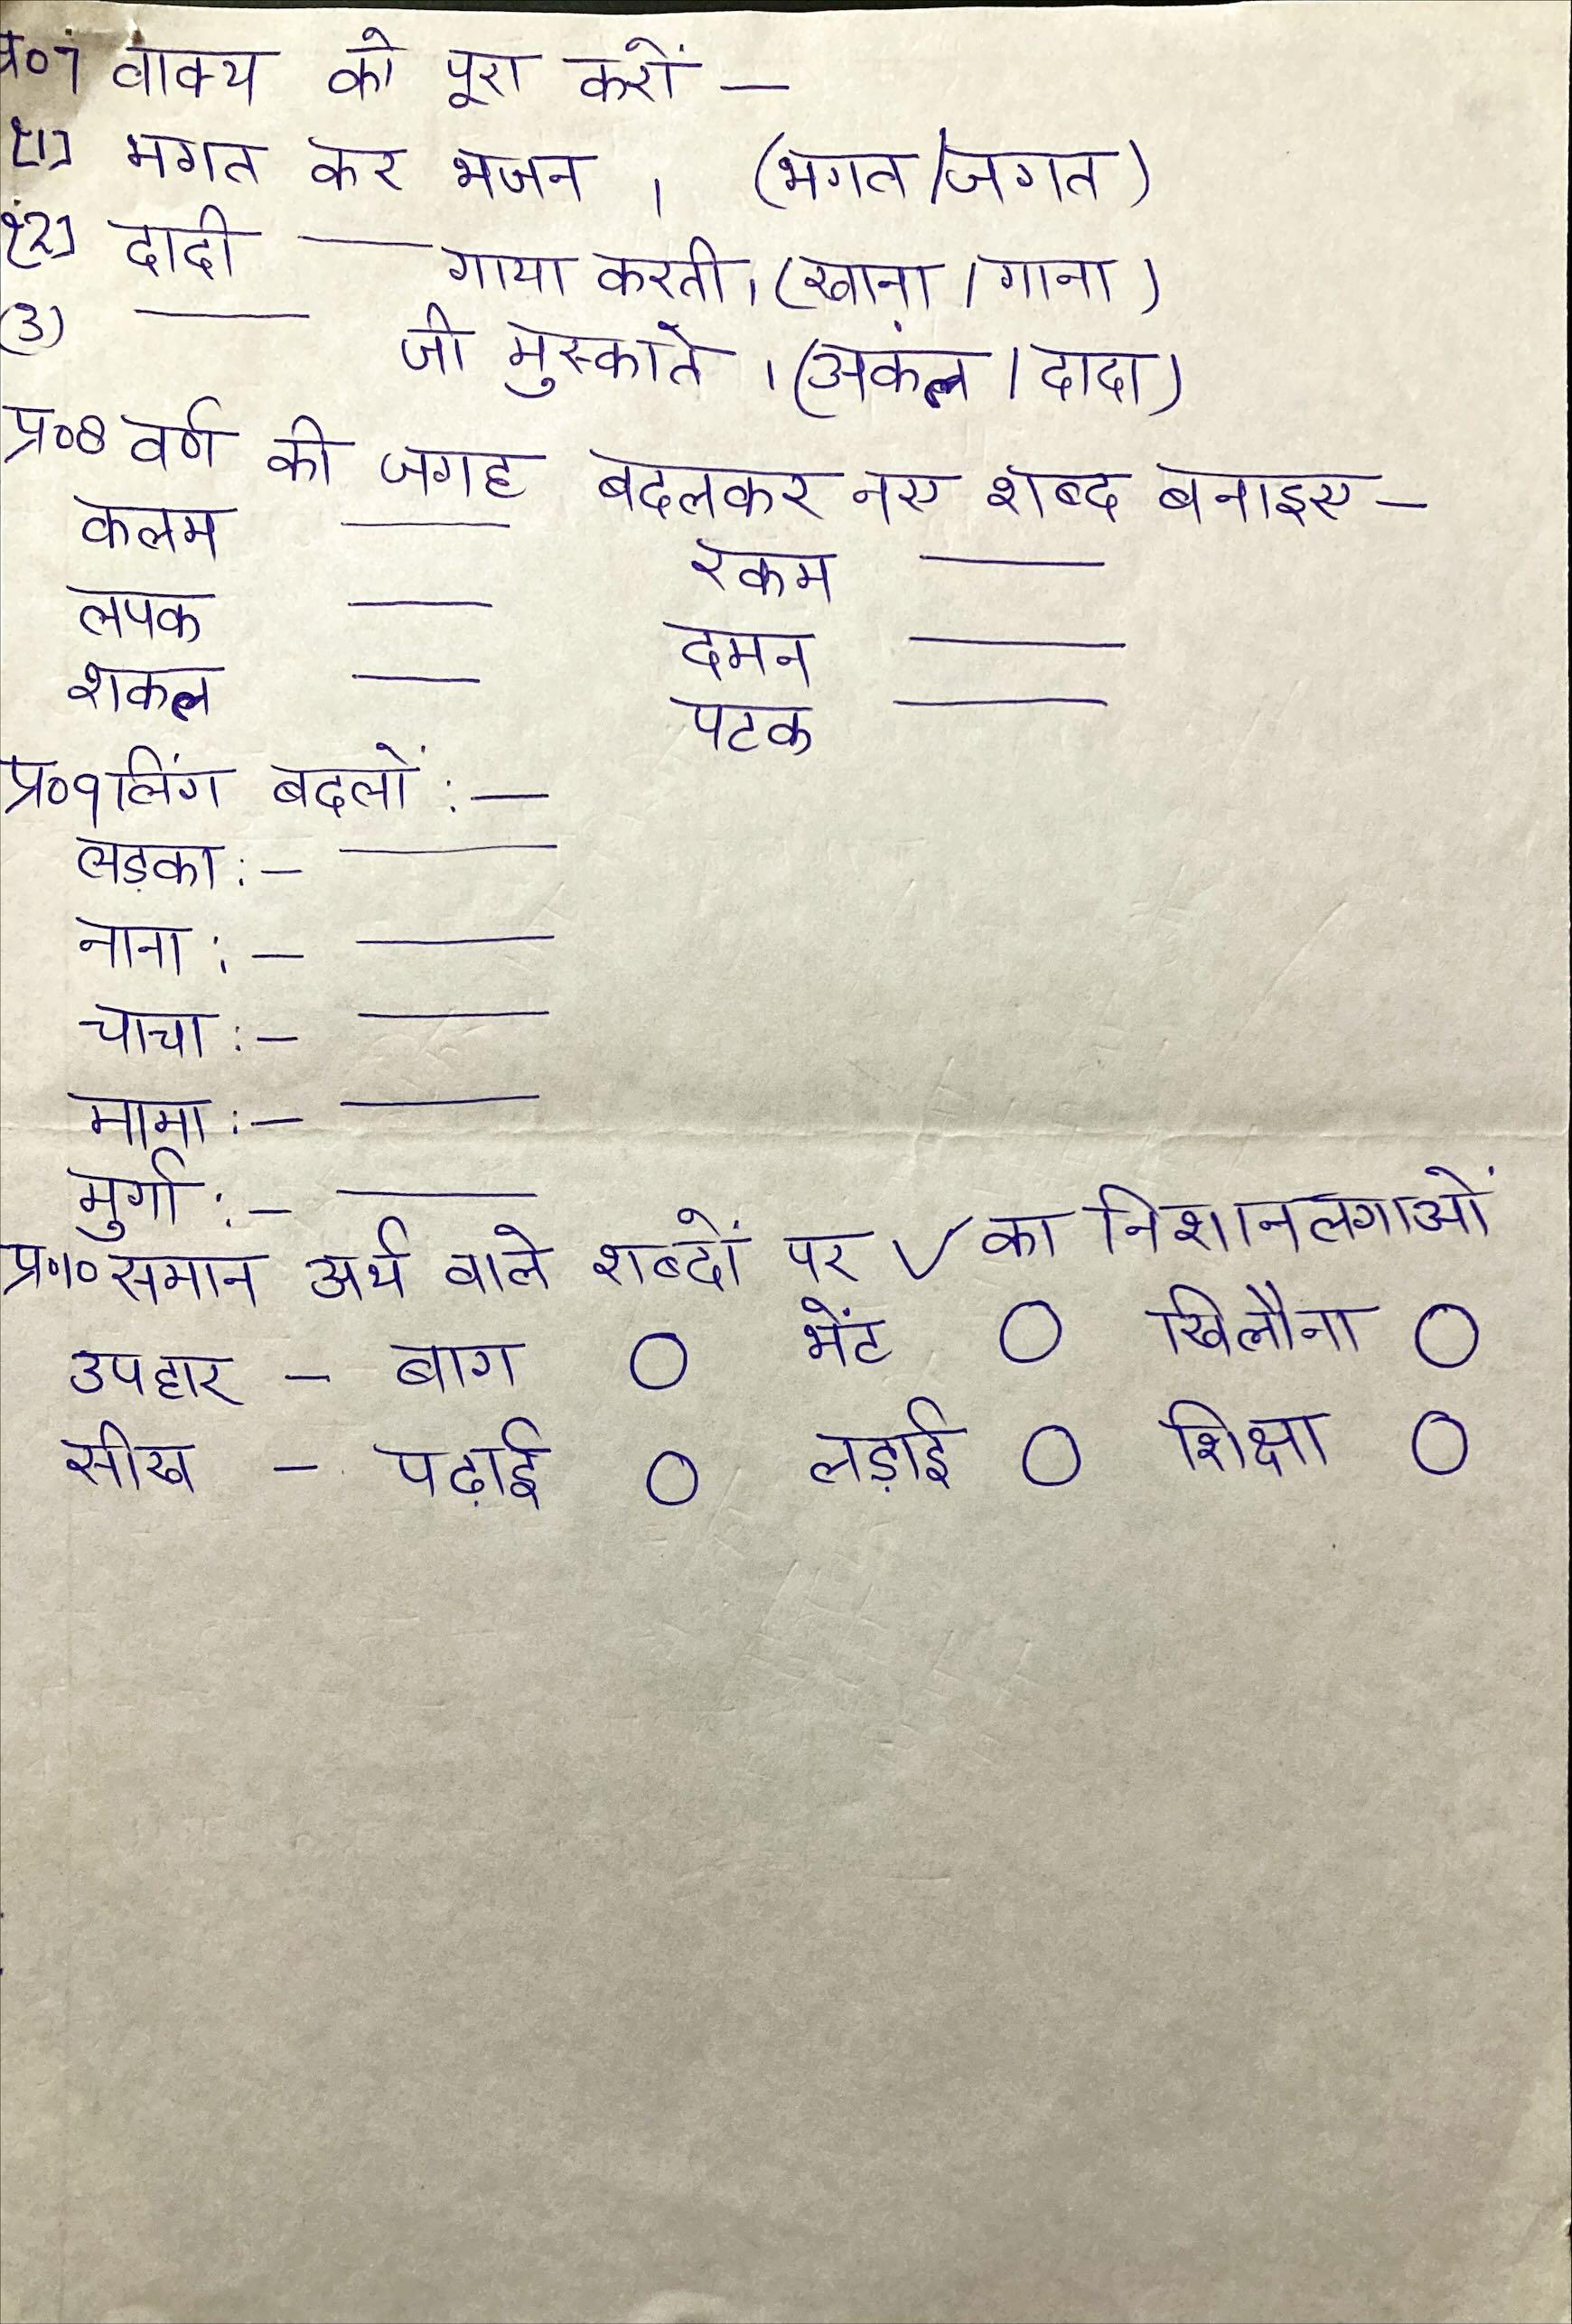 प्र०7 वाक्य को पूरा करों —
(1) मगत कर भजन । (भगत/जगत)
(2) दादी —— गाया करती। (खाना / गाना)
(3) —— जी मुस्काते । (अकंल / दादा)
प्र०8 वर्ण की जगह बदलकर नए शब्द बनाइए —
कलम —— रकम ——
लपक —— दमन ——
शकल —— पटक ——
प्र०9 लिंग बदलों :—
लड़का :— ——
नाना :— ——
चाचा :— ——
मामा :— ——
मुर्गा :— ——
प्र०10 समान अर्थ वाले शब्दों पर ✓ का निशान लगाओं
उपहार – बाग ○ भेंट ○ खिलौना ○
सीख – पढ़ाई ○ लड़ाई ○ शिक्षा ○